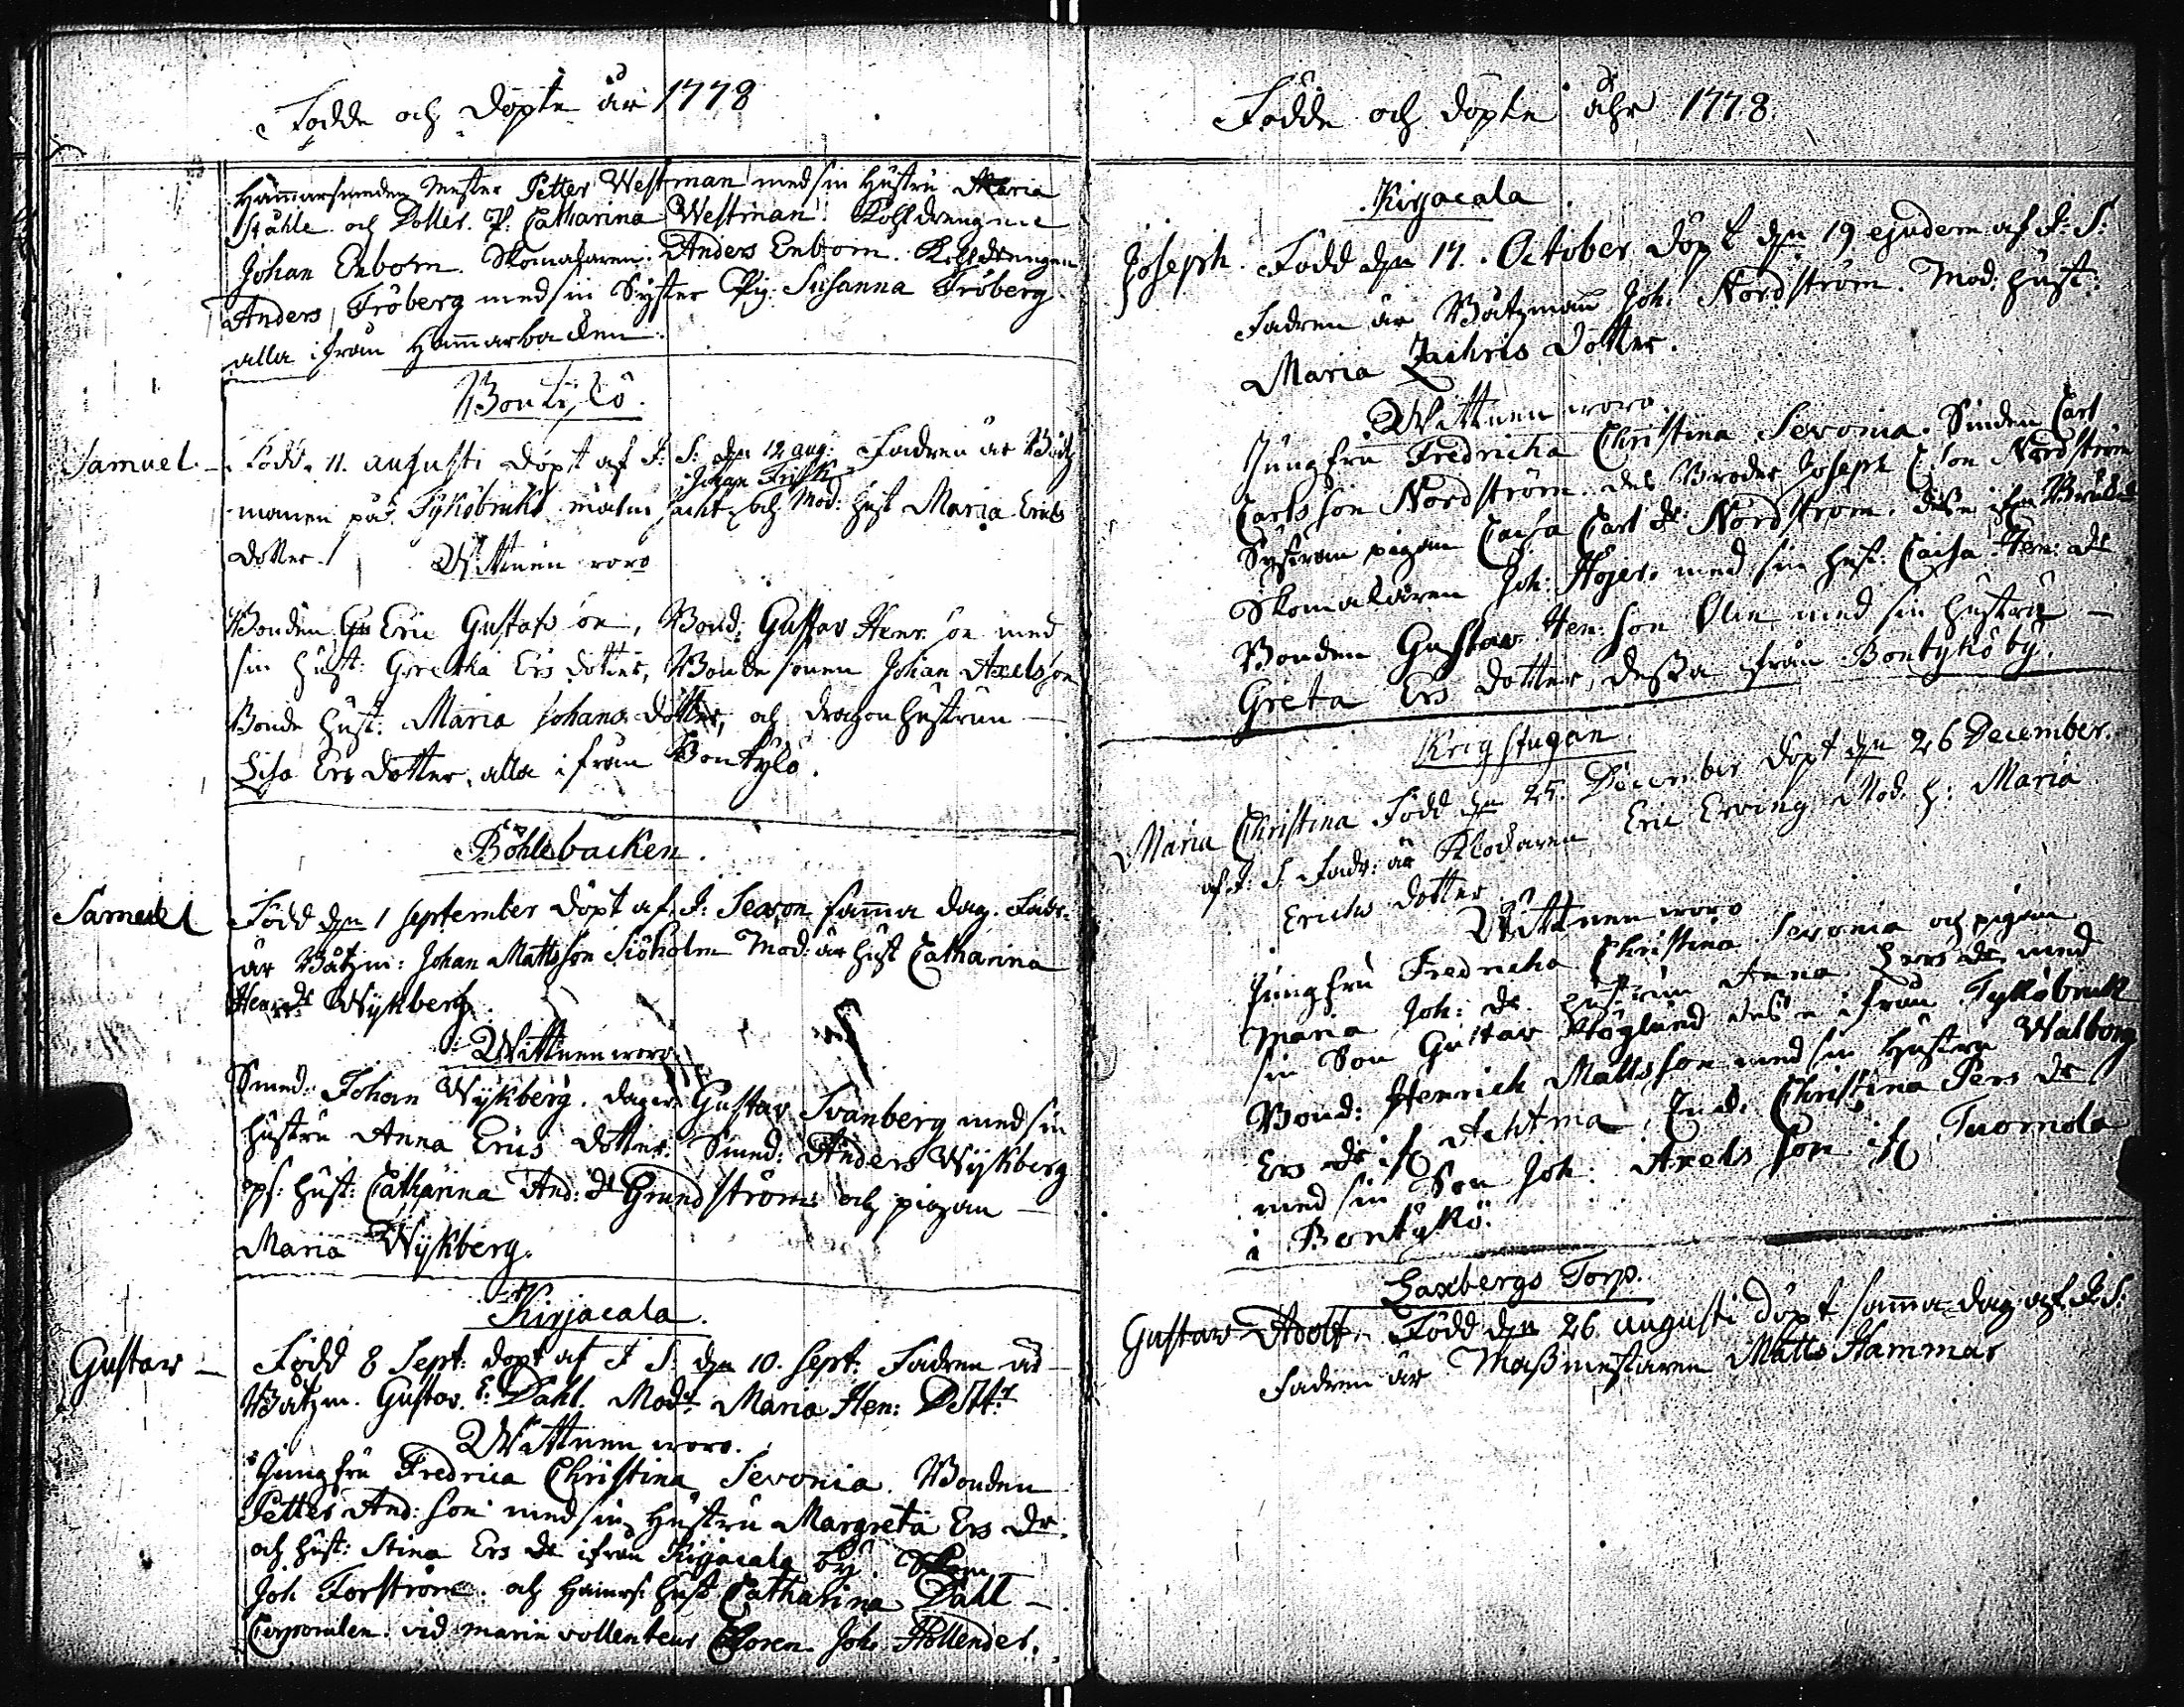 Födde och döpte år 1778
Hammarsmeden Mester Petter Westman med sin Hustru Maria
Ståhle och Dotter. P. Catharina Westman. Kohldrengarne
Johan Enbom. Skomakaren: Anders Enbom. Kohldrengen
Anders Fröberg med sin Syster Pig: Susanna Fröberg
alla ifrån Hammarbacken.
Samuel. Född. 11. augusti döpt af J: S: den 12 aug: Fadren är Båtz
Johan Frisk
manen på Tyköbruks och Mod: Hust Maria Erics
dotter. Wittnen woro
Bonden Eric Gustafs son, Bond: Gustav Henr. son med
sin Hust: Gretha Ers dotter, Bonde sonen Johan Axelsson
Bonde Hust: Maria Johans dotter, och dragon hustrun
Lisa Ers dotter, alla ifrån Bontykö.
Böhlebacken.
Samuel Född den 1 September döpt af J: Sevon samma dag. Fadr.
är Båtzm: Johan Mattsson Siöholm Mod: är Hust Catharina
Hen: dr Wykberg.
Wittnen woro
Smed: Johan Wykberg. Gustav Svanberg med sin
Hustru Anna Erics dotter. Smed: Anders Wykberg
Hust: Catharina And: dr Grundström och pigan
Maria Wykberg.
Kirjacala.
Gustav Född 8 Sept: döpt af J S: den 10. Sept: Fadren är
Båtzm. Gustav. E: Dahl. Modr Maria Hen: Dottr
Wittnen woro.
Jungfru Fredrica Christina Sevonia. Bonden
Petter And: son med sin Hustru Margreta Ers dr.
och Hust: Stina Ers dr ifrån Kirjacala by. Skom
Joh Forström. och Hust Catharina Dahl
Corporalen. vid marin Joh: Hollender.
Födde och döpte åhr 1778.
Kirjacala
Joseph. Född den 17. October döpt den 19 ejusdem af J: S:
Fadren är Båtzman Joh: Nordström. Mod: Hust:
Maria Zachris dotter.
Wittnen woro.
Jungfru Fredricha Christina Sevonia. Carl
Carls son Nordström. des Broder Joseph C son Nordström
Systran pigan Caisa Carl dr Nordström.
Skomakaren Joh: Höjer. med sin hust: Caisa Hen: dr
Bonden Gustav Hen: son Olin med sin hustru
Greta Ers dotter, dessa ifrån Bontykö by.
Krigstugan
Maria Christina Född den 25. December döpt den 26 December.
af J: S. Fadr: är Klockaren Eric Erving. Mod. H: Maria
Erichs dotter
Wittnen woro
Jungfru Fredricha Christina Sevonia och pigan
Maria Joh: dr hustrun Anna dr med
sin Son Gustav Höglund ifrån Tyköbruk
Bond: Henrich Mattsson med sin Hustru Walborg
Ers dr if: Christina Pers dr
med sin Son Joh: Axels son if Tuomola
i Bontykö.
Laxbergs Torp.
Gustav Adolf. Född den 26 augusti döpt samma dag af J. S.
Fadren är Masmestaren Matts Hammar